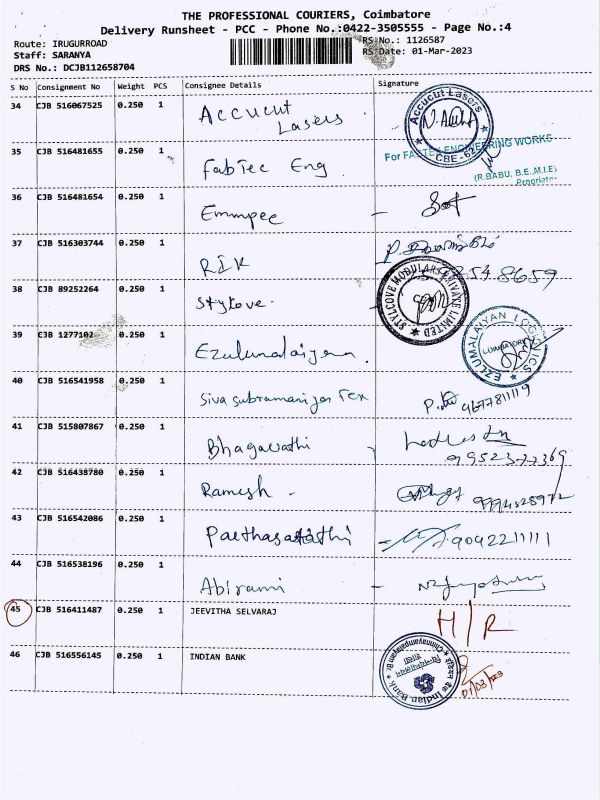 THE PROFESSIONAL COURIERS, Coimbatore
Delivery Runsheet - PCC - Phone No.:0422-3505555 - Page No.:4
Route: IRUGURROAD
Staff: SARANYA
DRS No.: DCJB112658704
RS No.: 1126587
RS Date: 01-Mar-2023
S No Consignment No Weight PCS Consignee Details Signature
34 CJB 516067525 0.250 1 Accucut Lasers
Accucut Lasers
CBE-62
35 CJB 516481655 0.250 1 FabTec Eng
ENGINEERING WORKS
(R.BABU, B.E.,M.I.E)
Proprietor
36 CJB 516481654 0.250 1 Emmpee
37 CJB 516303744 0.250 1 RIK
38 CJB 89252264 0.250 1 Stylcove
STYLCOVE MODULARS PRIVATE LIMITED
39 CJB 1277102 0.250 1
EZLUMALAIYAN LOGISTICS
COIMBATORE
40 CJB 516541958 0.250 1 Siva subramaniyan Tex
9677811119
41 CJB 515807867 0.250 1 Bhagavathi
42 CJB 516438780 0.250 1 Ramesh -
43 CJB 516542086 0.250 1
9042211111
44 CJB 516538196 0.250 1 Abirami
45 CJB 516411487 0.250 1 JEEVITHA SELVARAJ H/R
46 CJB 516556145 0.250 1 INDIAN BANK
Indian Bank